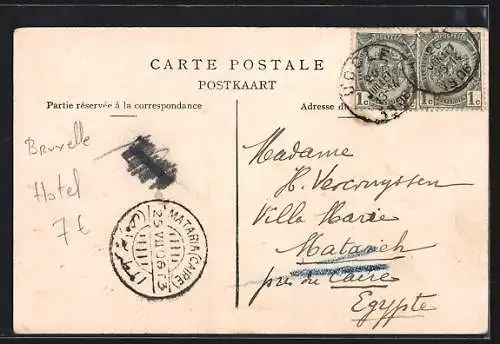 CARTE POSTALE
POSTKAART
Partie réservée à la correspondance
Adresse du
Bruxelle
Hotel
7t
MATARIA (CAIRE)
25 VII 06
Madame
H. Vercruyssen
Villa Marie
Matarieh
près du Caire
Egypte
1c 1c 1c